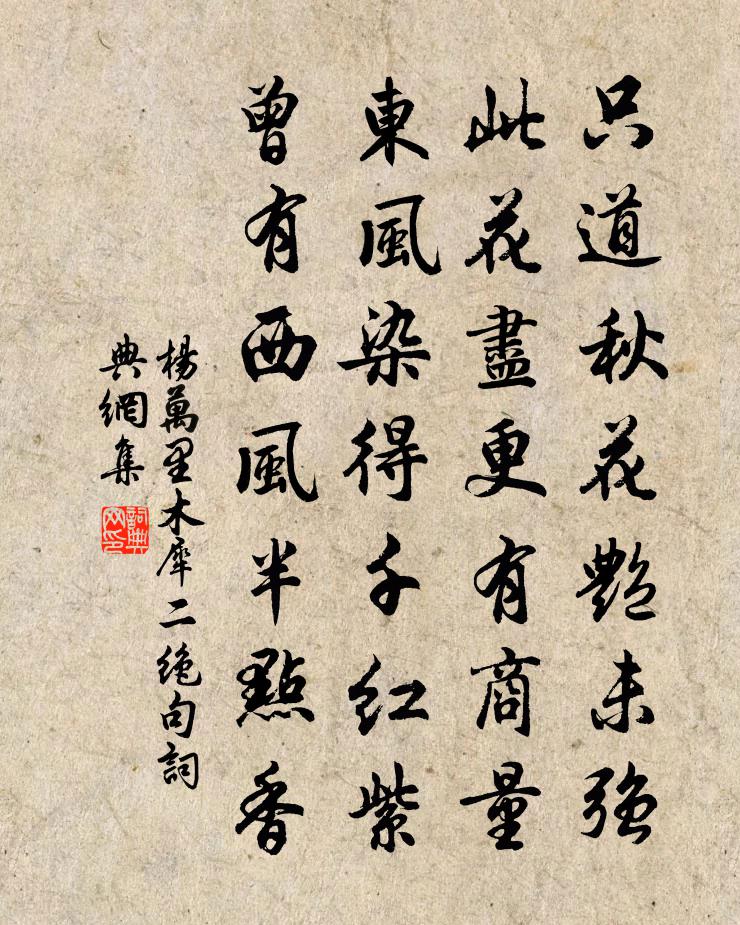 只道秋花艷未強
此花盡更有商量
東風染得千紅紫
曾有西風半點香
楊萬里木犀二絶句詞
典網集
詞典網印